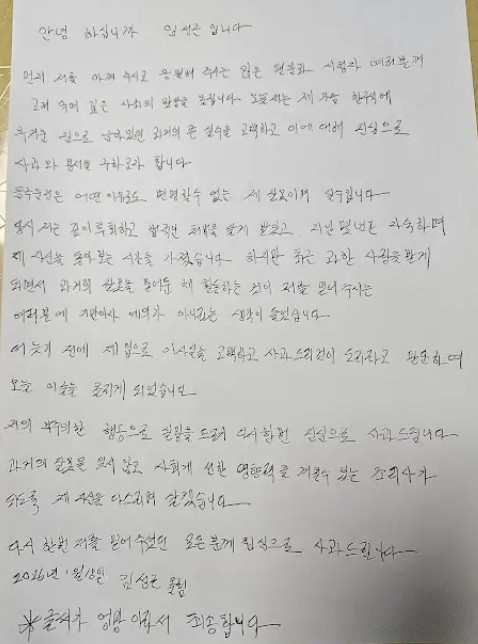 안녕 하십니까 임성근 입니다
먼저 저를 아껴 주시고 응원해 주시는 많은 팬분과 시청자 여러분께
고개 숙여 깊은 사죄의 말씀을 드립니다 오늘 저는 제 가슴 한구석에
무거운 짐으로 남아있던 과거의 큰 실수를 고백하고 이에 대해 진심으로
사과와 용서를 구하고자 합니다
음주운전은 어떤 이유로도 변명할수 없는 제 잘못이며 실수입니다
당시 저는 깊이 후회하고 법적인 처벌을 달게 받았고, 지난 몇년은 자숙하며
제 자신을 돌아보는 시간을 가졌습니다 하지만 최근 과한 사랑을 받게
되면서 과거의 잘못을 묻어둔 채 활동하는 것이 저를 믿어주시는
여러분에 기만이자 예의가 아니라는 생각이 들었습니다
더 늦기 전에 제 입으로 이사실을 고백하고 사과드리것이 도리라고 판단하여
오늘 이글을 올리게 되었습니다
저의 부주의한 행동으로 실망을 드려 다시한번 진심으로 사과드립니다
과거의 잘못을 잊지 않고 사회에 선한 영향력으로 저할수 있는 조리사가
되도록 제 자신을 다스리며 살겠습니다
다시 한번 저를 믿어 주셨던 모든 분께 진심으로 사과드립니다
2026년 1월 18일 임성근 올림
※글씨가 엉망 이라서 죄송합니다